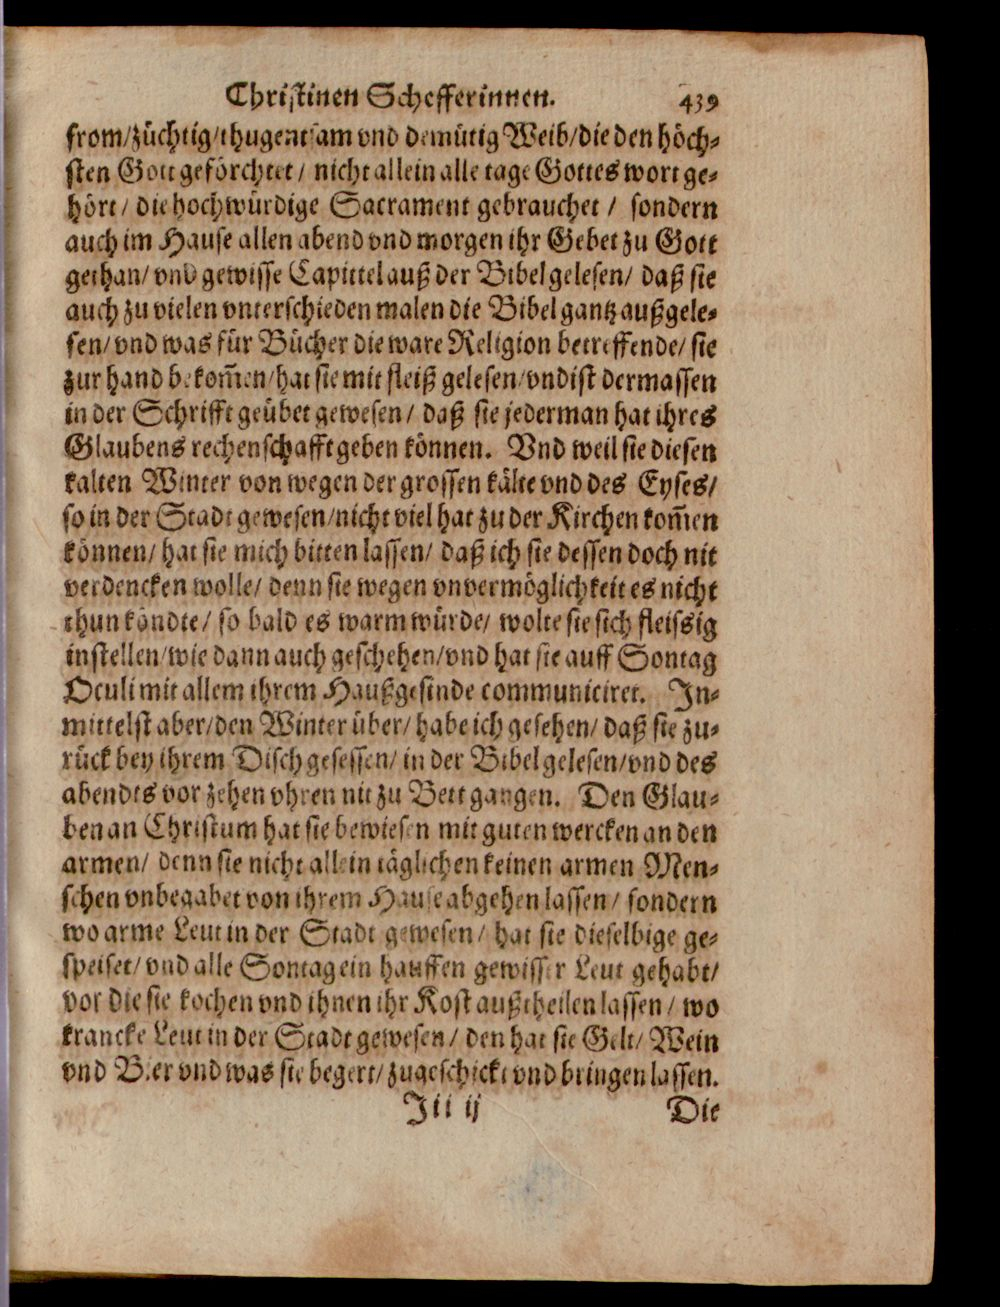 Christinen Schefferinnen. 439
from/züchtig/thugentsam vnd demütig Weib/die den höch-
sten Gott geförchtet/ nicht allein alle tage Gottes wort ge-
hört/ die hochwürdige Sacrament gebrauchet/ sondern
auch im Hause allen abend vnd morgen ihr Gebet zu Gott
gethan/ vnd gewisse Capittel auß der Bibel gelesen/ daß sie
auch zu vielen vnterschieden malen die Bibel gantz außgele-
sen/ vnd was für Bücher die ware Religion betreffende/ sie
zur hand bekom̃en/ hat sie mit fleiß gelesen/ vnd ist dermassen
in der Schrifft geübet gewesen/ daß sie jederman hat ihres
Glaubens rechenschafft geben können. Vnd weil sie diesen
kalten Winter von wegen der grossen kälte vnd des Eyses/
so in der Stadt gewesen/ nicht viel hat zu der Kirchen kom̃en
können/ hat sie mich bitten lassen/ daß ich sie dessen doch nit
verdencken wolle/ denn sie wegen vnvermöglichkeit es nicht
thun köndte/ so bald es warm würde/ wolte sie sich fleissig
instellen/ wie dann auch geschehen/ vnd hat sie auff Sontag
Oculi mit allem ihrem Haußgesinde communiciret. In-
mittelst aber/ den Winter über/ habe ich gesehen/ daß sie zu-
rück bey ihrem Disch gesessen/ in der Bibel gelesen/ vnd des
abendts vor zehen vhren nit zu Bett gangen. Den Glau-
ben an Christum hat sie bewiesen mit guten wercken an den
armen/ denn sie nicht allein täglichen keinen armen Men-
schen vnbegabet von ihrem Hause abgehen lassen/ sondern
wo arme Leut in der Stadt gewesen/ hat sie dieselbige ge-
speiset/ vnd alle Sontag ein hauffen gewisser Leut gehabt/
vor die sie kochen vnd ihnen ihr Kost außtheilen lassen/ wo
krancke Leut in der Stadt gewesen/ den hat sie Gelt/ Wein
vnd Bier vnd was sie begert/ zugeschickt vnd bringen lassen.
Iii ij Die